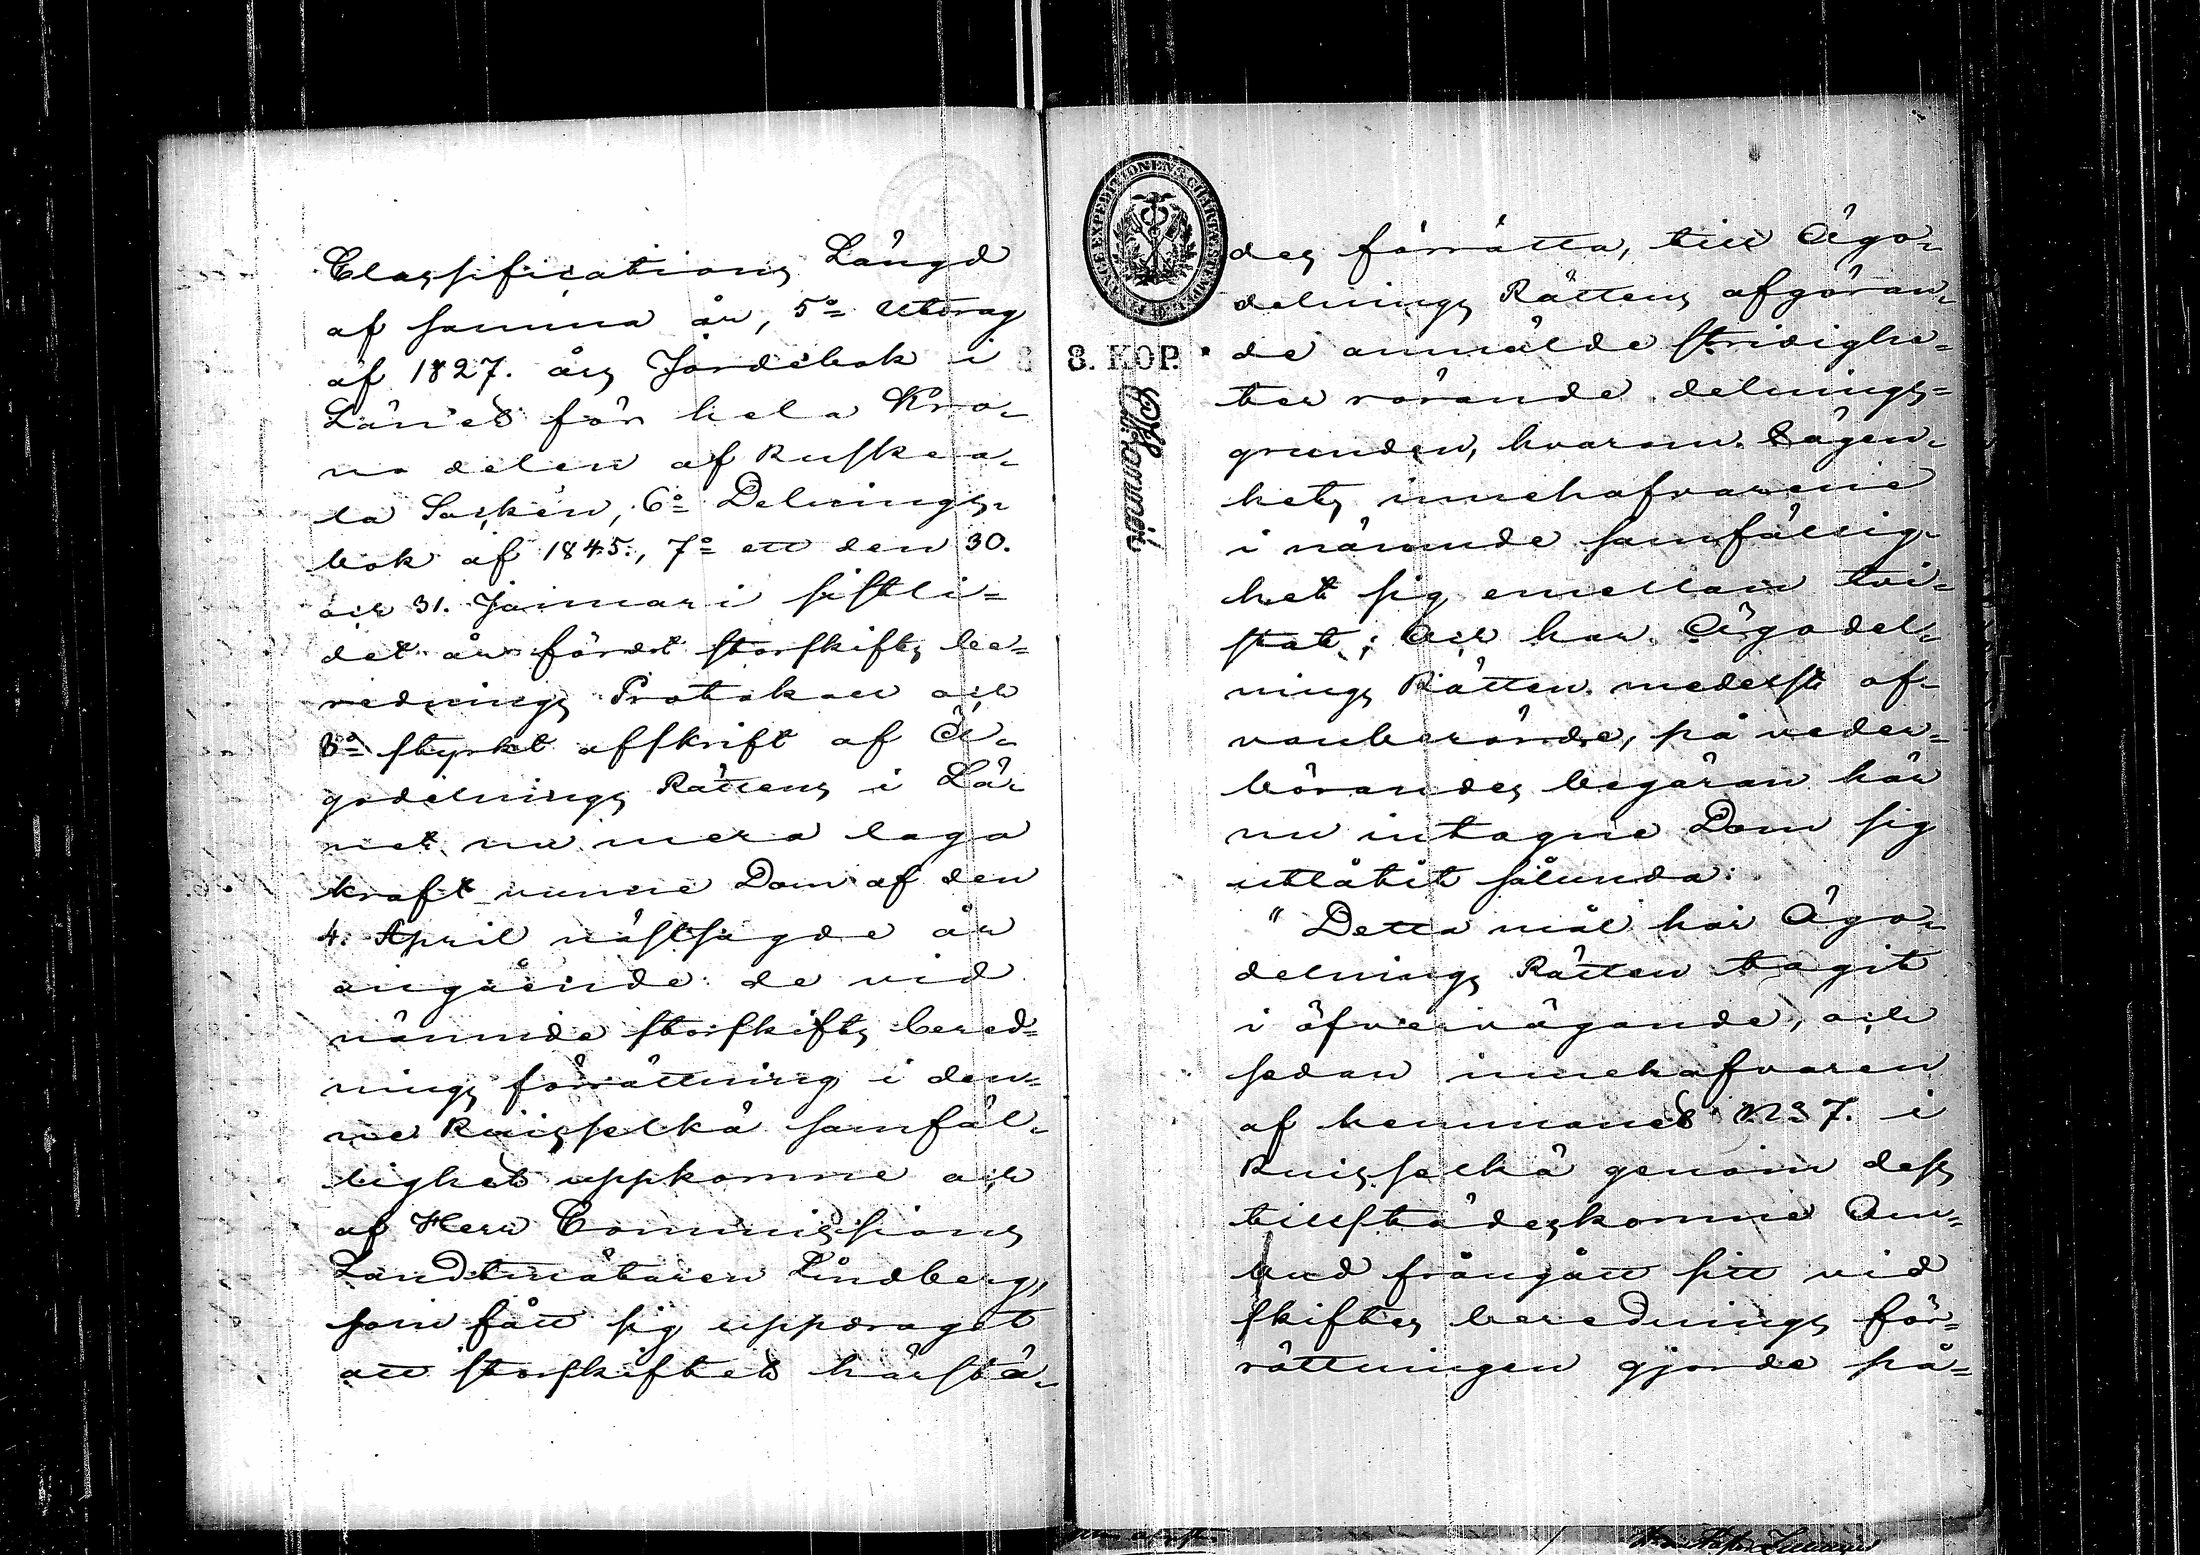 Classifications Längd
af samma år, 5:o Utdrag
af 1827. års Jordebok i
Länet för hela Kro-
no delen af Ruskea-
la Socken, 6:o Delnings-
bok af 1845., 7:o ett den 30.
och 31. Januari sistli-
det år fördt storskifts be-
rednings Protokoll och
8:o styrkt afskrift af Ä-
godelnings Rättens i Lä-
net nu mera laga
kraft vunne Dom af den
4. April nästsagde år
angående de vid
nämnde storskifts bered-
nings förrättning i den-
ne Ruisselkä samfäl-
lighet uppkomne och
af Herr Commissions
Landtmätaren Lindberg,
som fått sig uppdraget
att storskiftet härstä-
8. KOP.
des förrätta, till Ägo-
delnings Rättens afgöran-
de anmälde stridighe-
ter rörande delnings-
grunden, hvarom Lägen-
hets innehafvarene
i nämnde samfällig-
het sig emellan tvi-
stat; Och har Ägodel-
nings Rätten medelst of-
vanberörde, på veder-
börandes begäran här
nu intagne Dom sig
utlåtit sålunda:
"Detta mål har Ägo-
delnings Rätten tagit
i öfvervägande, och
sedan innehafvaren
af hemmanet N:o 7. i
Ruisselkä genom dess
tillstädeskomne Om-
bud frångått sitt vid
skiftes berednings för-
rättningen gjorde på-